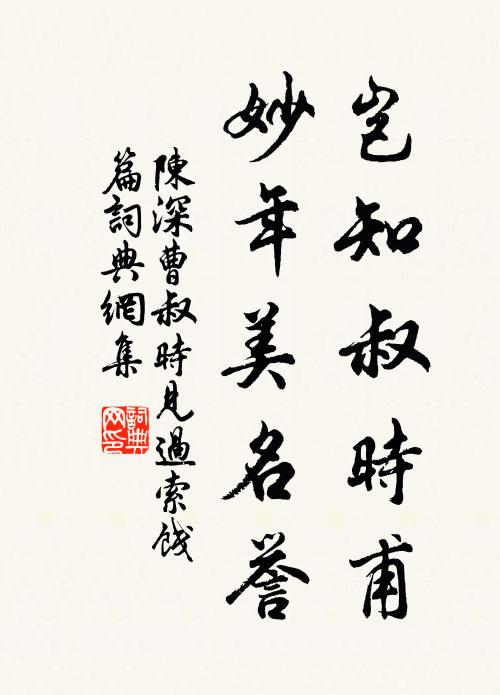 豈知叔時甫
妙年美名譽
陳深曹叔時見過索餞
篇詞典網集
詞典网印